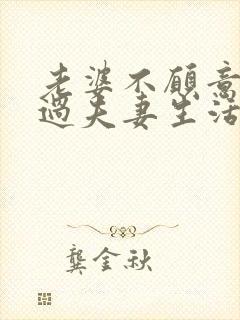 老婆不愿意
过夫妻生活
龚金秋